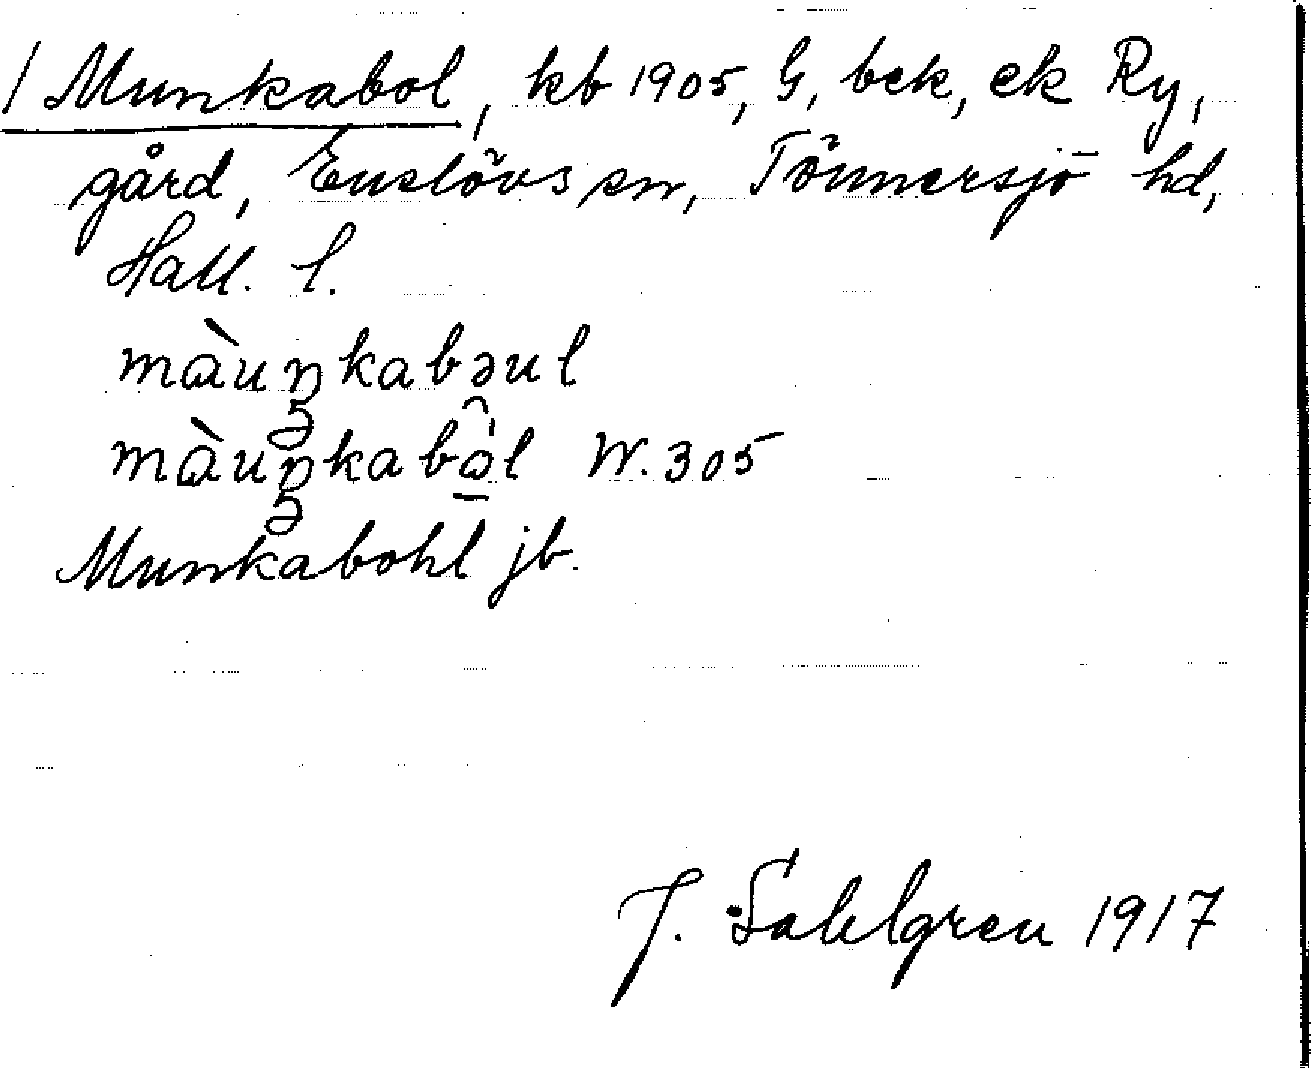 / Munkabol, kb 1905, G, bek, ek Ry,
gård, Enslövs sn, Tönnersjö hd,
Hall. l.
màuŋkabəul
màuŋkabə̂l W. 305
Munkabohl jb.
J. Sahlgren 1917